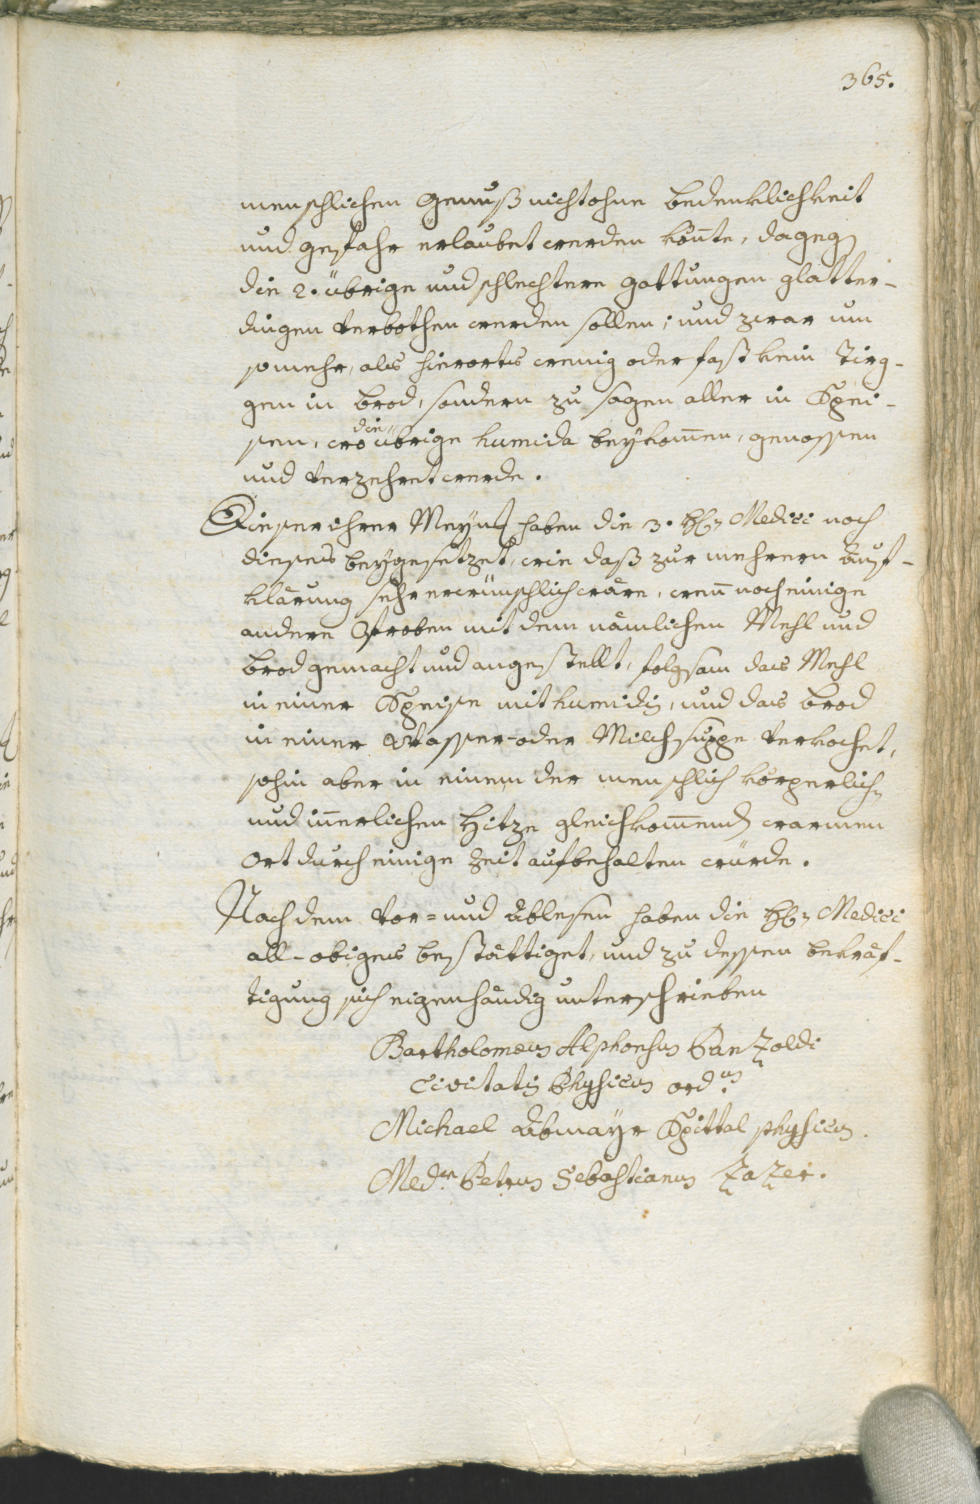 365.
menschlichen Genuß nicht ohne bedenklichkeit
und gefahr erlaubet werden könte, dageg
die 2. übrige und schlechtere gattungen glatter-
dingen verbothen werden sollen; und zwar um
so mehr, als hierorts wenig oder fast kein Tirg-
gen in brod, sondern zu sagen aller in Spei-
sen, wo die übrige humida beÿkom̄en, genossen
und verzehret werde.
Dieser ihrer Meÿng haben die 3. HH. Medici noch
dieses beÿgesetzet, wie daß zur mehrern Auf-
klärung sehr erwünschlich wäre, wen̄ noch einige
andere Proben mit dem nämlichen Mehl und
brod gemacht und angestellt, folgsam das Mehl
in einer Speise mit humidis, und das brod
in einer Wasser- oder Milchsuppe verkochet,
sohin aber in einem der menschlich körperlich
und in̄erlichen Hitze gleichkom̄end warmen
Ort durch einige Zeit aufbehalten würde.
Nach dem Vor- und Ablesen haben die HH. Medici
all-obiges bestättiget, und zu dessen bekräf-
tigung sich eigenhändig unterschrieben
Bartholomeus Alphonsus Panzoldi
Civitatis Physicus ord.us
Michael Abmaÿr Spittal physicus.
Med. Petrus Sebastianus Zazer.